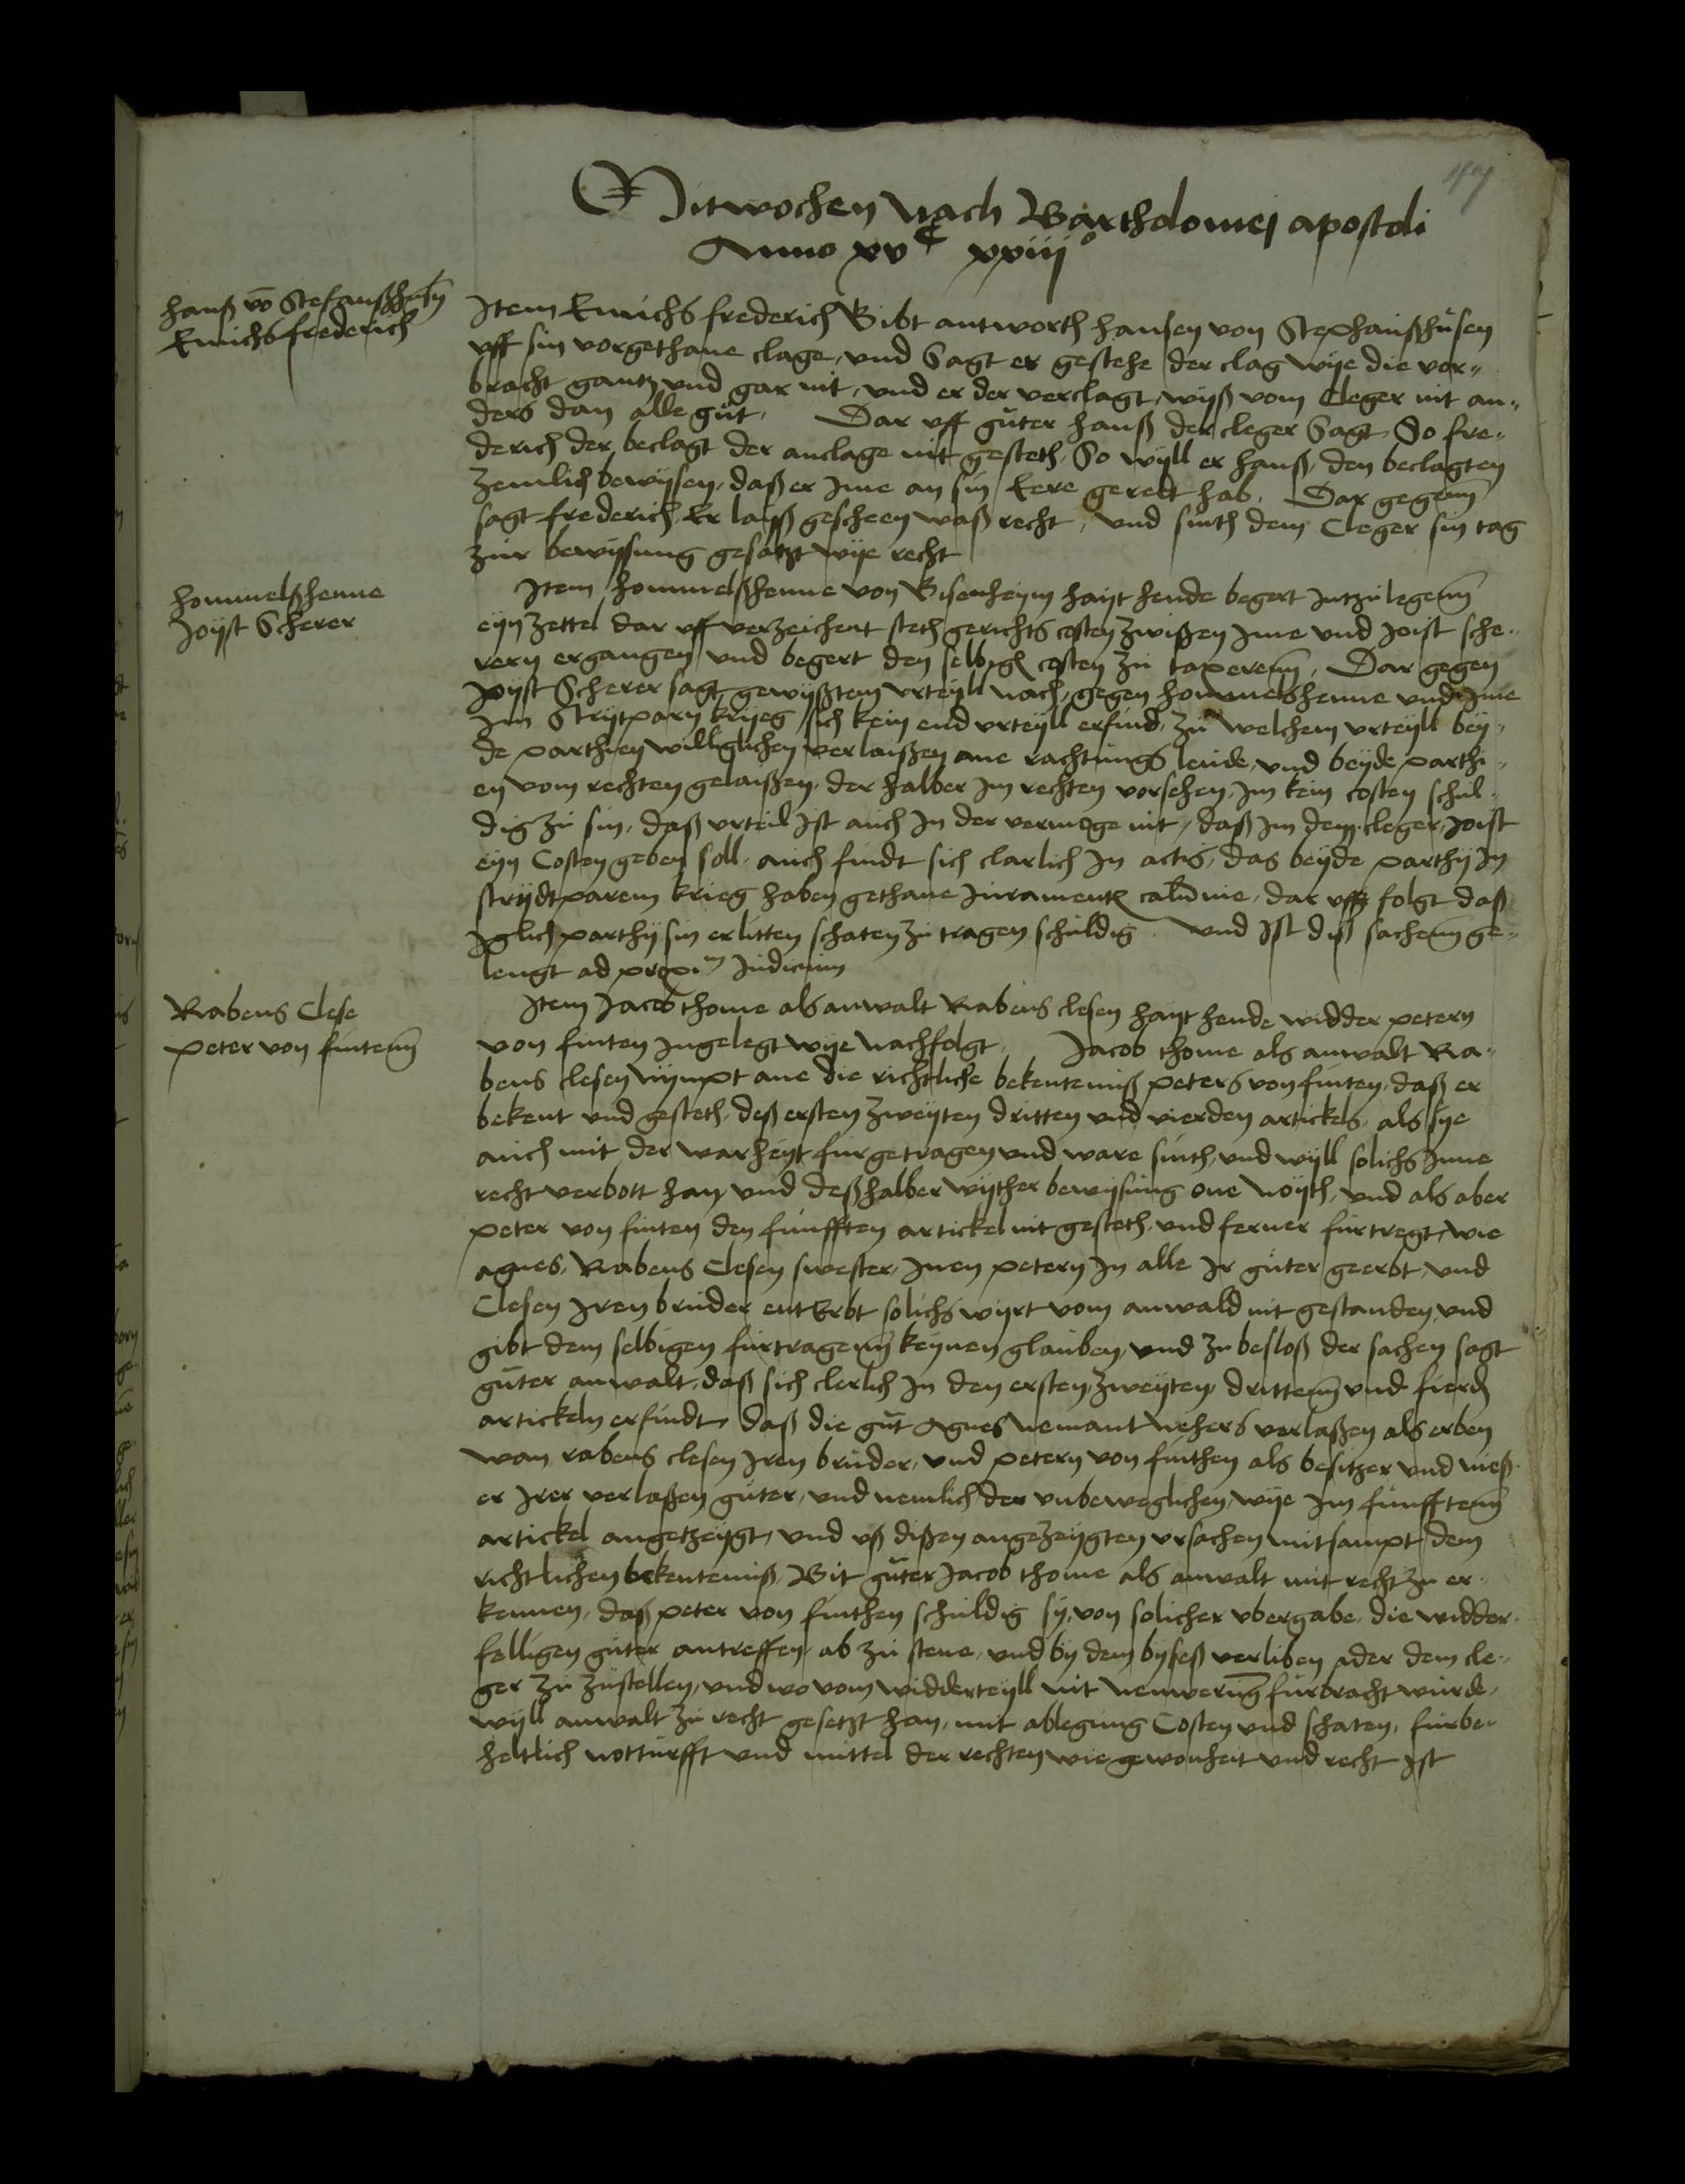 Mitwochen nach Bartholomej apostoli
Anno xvᶜ xxiiijᵒ
hanß vō Stefanßhusen
Emichs frederich
Item Emichs frederich Gibt antworth hansen von Stephanßhusen
uff sin vorgethane clage, und Sagt er gestehe der clag wye die vor-
bracht gantz und gar nit, und er der verclagt, wyß vom Cleger nit an-
ders dan alle gut. Dar uff guter hanß der cleger Sagt, So fre-
derich der beclagt der anclage nit gesteth, So wyll er hanß, den beclagten
zemlich bewysen, daß er Ime an sin Eere geredt hab. Dar gegenn
sagt frederich, Er laiß gescheen waß recht, und sinth dem Cleger sin tag
zur bewissung gesatzt wye recht
hommelßhenne
Joyst Scherer
Item hommelßhenne von Bisenheym hayt hende begert Intzulegenn
eyn zettel dar uff verzeichent steth gerichts costen zwißen Ime und Joist sche-
rern ergangen und begert den selbigen costen zu taxerenn, Dar gegen
Joyst Scherer sagt, gewyßtem urteyll nach, gegen hommelshenne und Ime
Im Strytparn kryeg, sich kein end urteyll erfind, zu welchem urteyll bey-
de parthien williglichen verlaißen ane rachtungs leude, und beyde parthi-
en vom rechten gelaißen, der halber Im rechten vorsehen, Im kein costen schul-
dig zu sin, daß urteil Ist auch In der vermoge nit, daß Im dem cleger, Joist
eyn Costen geben soll, auch findt sich clarlich In actis, das beyde parthy In
strydtparem krieg haben gethane Juramente calūnie, dar uff folgt daß
Iglich parthy sin erlitten schaten zu tragen schuldig. und Ist diß sachenn ge-
lengt ad proxim Judicium
Rabens Clese
Peter von fintenn
Item Jacob thome als anwalt Rabens clesen hayt hende widder petern
von finten Ingelegt wye nachfolgt. Jacob thome als anwalt Ra-
bens clesen nympt ane die richtliche bekenteniß peters von finten, daß er
bekent und gesteth, deß ersten zweyten dritten und vierden artickels, als sye
auch mit der warheyt furgetragen und ware sinth, und wyll solichs Inne
recht verbott han, und deßhalber wyther bewysung one noyth, und als aber
peter von finten den funfften artickel nit gesteth, und ferner furtregt, wie
agnes, Rabens Clesen swester, Inen petern In alle Ir guter geerbt, und
Clesen Iren bruder entErbt solichs wyrt vom anwald nit gestanden, und
gibt dem selbigen furtragenn keynen glauben, und zu besloß der sachen sagt
guter anwalt, daß sich clerlich In den ersten, zweyten, drittenn und fierden
artickeln erfindt, daß die gut Agnes nemant nehers verlaßen als erben
wan rabens clesen Iren bruder, und petern von finthen als besitzer und nieß-
er Irer verlaßen guter, und nemlich der unbeweglichen, wye Im funfftenn
artickel angetzeygt, und uß dißen angezeygten ursachen mitsampt dem
richtlichen bekenteniß, Bit guter Jacob thome als anwalt mit recht zu er-
kennen, daß peter von finthen schuldig sy, von solicher ubergabe, die widder-
felligen guter antreffen, ab zu stene, und by dem byseß verliben ader dem cle-
ger zu zustellen, und wo vom widderteyll nit nenwerung furbracht wurde,
wyll anwalt zu recht gesetzt han, mit ablegung Costen und schaten, furbe-
heltlich notturfft und mittel der rechten wie gewonheit und recht Ist